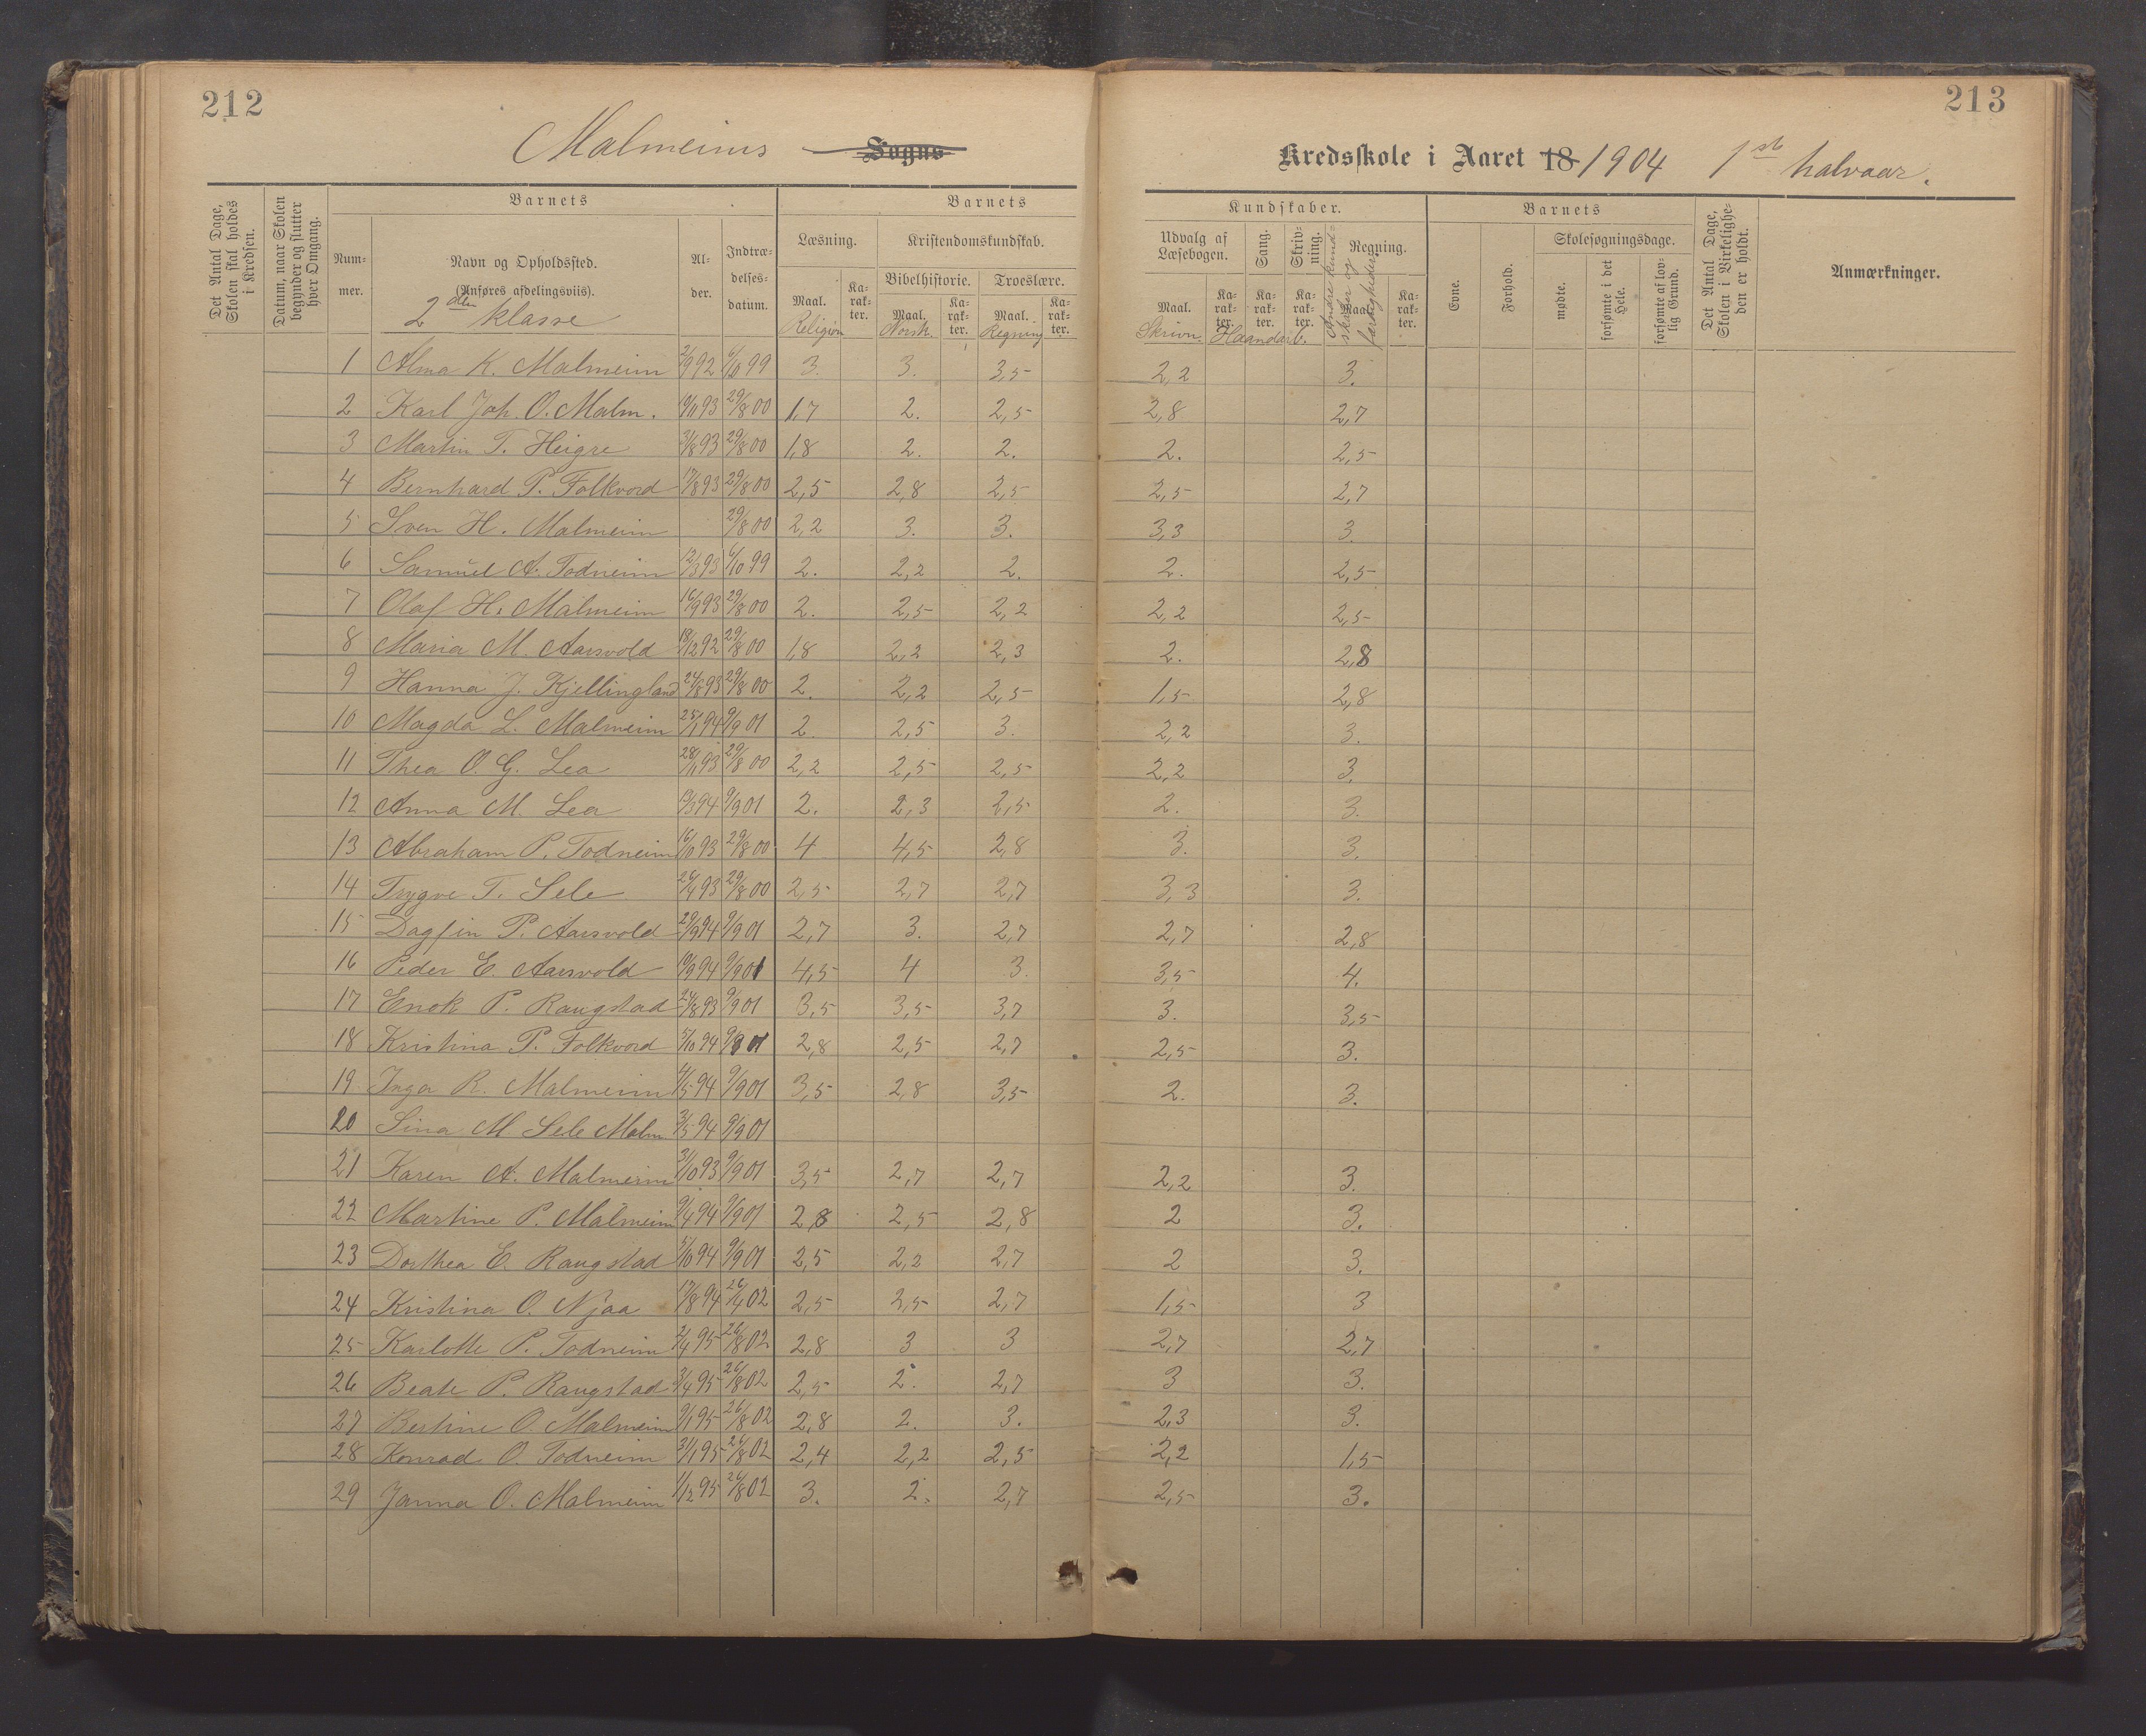 212
213
Malmeims Sogns Kredsskole i Aaret 18 1904 1st halvaar.
Det Antal Dage, Skolen skal holdes i Kredsen.
Datum, naar Skolen begynder og slutter hver Omgang.
Barnets
Barnets
Kundskaber.
Barnets
Nummer.
Navn og Opholdssted.
(Anføres afdelingsviis).
2den klasse
Alder.
Indtrædelses-datum.
Læsning.
Kristendomskundskab.
Bibelhistorie. Troeslære.
Udvalg af Læsebogen.
Sang.
Skrivning.
Regning.
Andre kundskaber og færdigheder
Evne.
Forhold.
Skolesøgningsdage.
mødte.
forsømte i det Hele.
forsømte af lovlig Grund.
Det Antal Dage, Skolen i Virkeligheden er holdt.
Anmærkninger.
Maal. Karakter. Maal. Karakter. Maal. Karakter. Maal. Karakter. Karakter. Karakter. Maal. Karakter.
Religion Norsk. Regning Skrivn. Haandarb.
1 Alma K. Malmeim 2/9 92 6/10 99 3. 3. 3,5 2,2 3.
2 Karl Joh. O. Malm. 9/11 93 29/8 00 1,7 2. 2,5 2,8 2,7
3 Martin T. Heigre 3/8 93 29/8 00 1,8 2. 2. 2. 2,5
4 Bernhard P. Folkvord 17/8 93 29/8 00 2,5 2,8 2,5 2,5 2,7
5 Sven H. Malmeim 29/8 00 2,2 3. 3. 3,3 3.
6 Samuel A. Todneim 12/3 93 6/10 99 2. 2,2 2. 2. 2,5
7 Olaf H. Malmeim 16/9 93 29/8 00 2. 2,5 2,2 2,2 2,5
8 Maria M. Aarsvold 18/12 92 29/8 00 1,8 2,2 2,3 2. 2,8
9 Hanna J. Kjellingland 24/8 93 29/8 00 2. 2,2 2,5 1,5 2,8
10 Magda L. Malmeim 25/1 94 9/9 01 2. 2,5 3. 2,2 3.
11 Thea O. G. Lea 28/11 93 29/8 00 2,2 2,5 2,5 2,2 3.
12 Anna M. Lea 19/3 94 9/9 01 2. 2,3 2,5 2. 3.
13 Abraham P. Todneim 16/10 93 29/8 00 4 4,5 2,8 3. 3.
14 Trygve T. Sele 26/4 93 29/8 00 2,5 2,7 2,7 3,3 3.
15 Dagfin P. Aarsvold 29/9 94 9/9 01 2,7 3. 2,7 2,7 2,8
16 Peder E. Aarsvold 19/9 94 9/9 01 4,5 4 3. 3,5 4.
17 Enok P. Raugstad 24/8 93 9/9 01 3,5 3,5 3,7 3. 3,5
18 Kristina P. Folkvord 5/10 94 9/9 01 2,8 2,5 2,7 2,5 3.
19 Inga R. Malmeim 4/5 94 9/9 01 3,5 2,8 3,5 2. 3.
20 Sina M Sele Malm 3/5 94 9/9 01
21 Karen A. Malmeim 3/10 93 9/9 01 3,5 2,7 2,7 2,2 3.
22 Martine P. Malmeim 9/4 94 9/9 01 2,8 2,5 2,8 2 3.
23 Dorthea E. Raugstad 5/10 94 9/9 01 2,5 2,2 2,7 2 3.
24 Kristina O. Njaa 17/8 94 26/4 02 2,5 2,5 2,7 1,5 3
25 Karlotte P. Todneim 2/4 95 26/8 02 2,8 3 3 2,7 2,7
26 Beate P. Raugstad 3/4 95 26/8 02 2,5 2. 2,7 3 3.
27 Bertine O. Malmeim 9/1 95 26/8 02 2,8 2. 3. 2,3 3.
28 Konrad O. Todneim 31/1 95 26/8 02 2,4 2,2 2,5 2,2 1,5
29 Janna O. Malmeim 1/12 95 26/8 02 3. 2. 2,7 2,5 3.